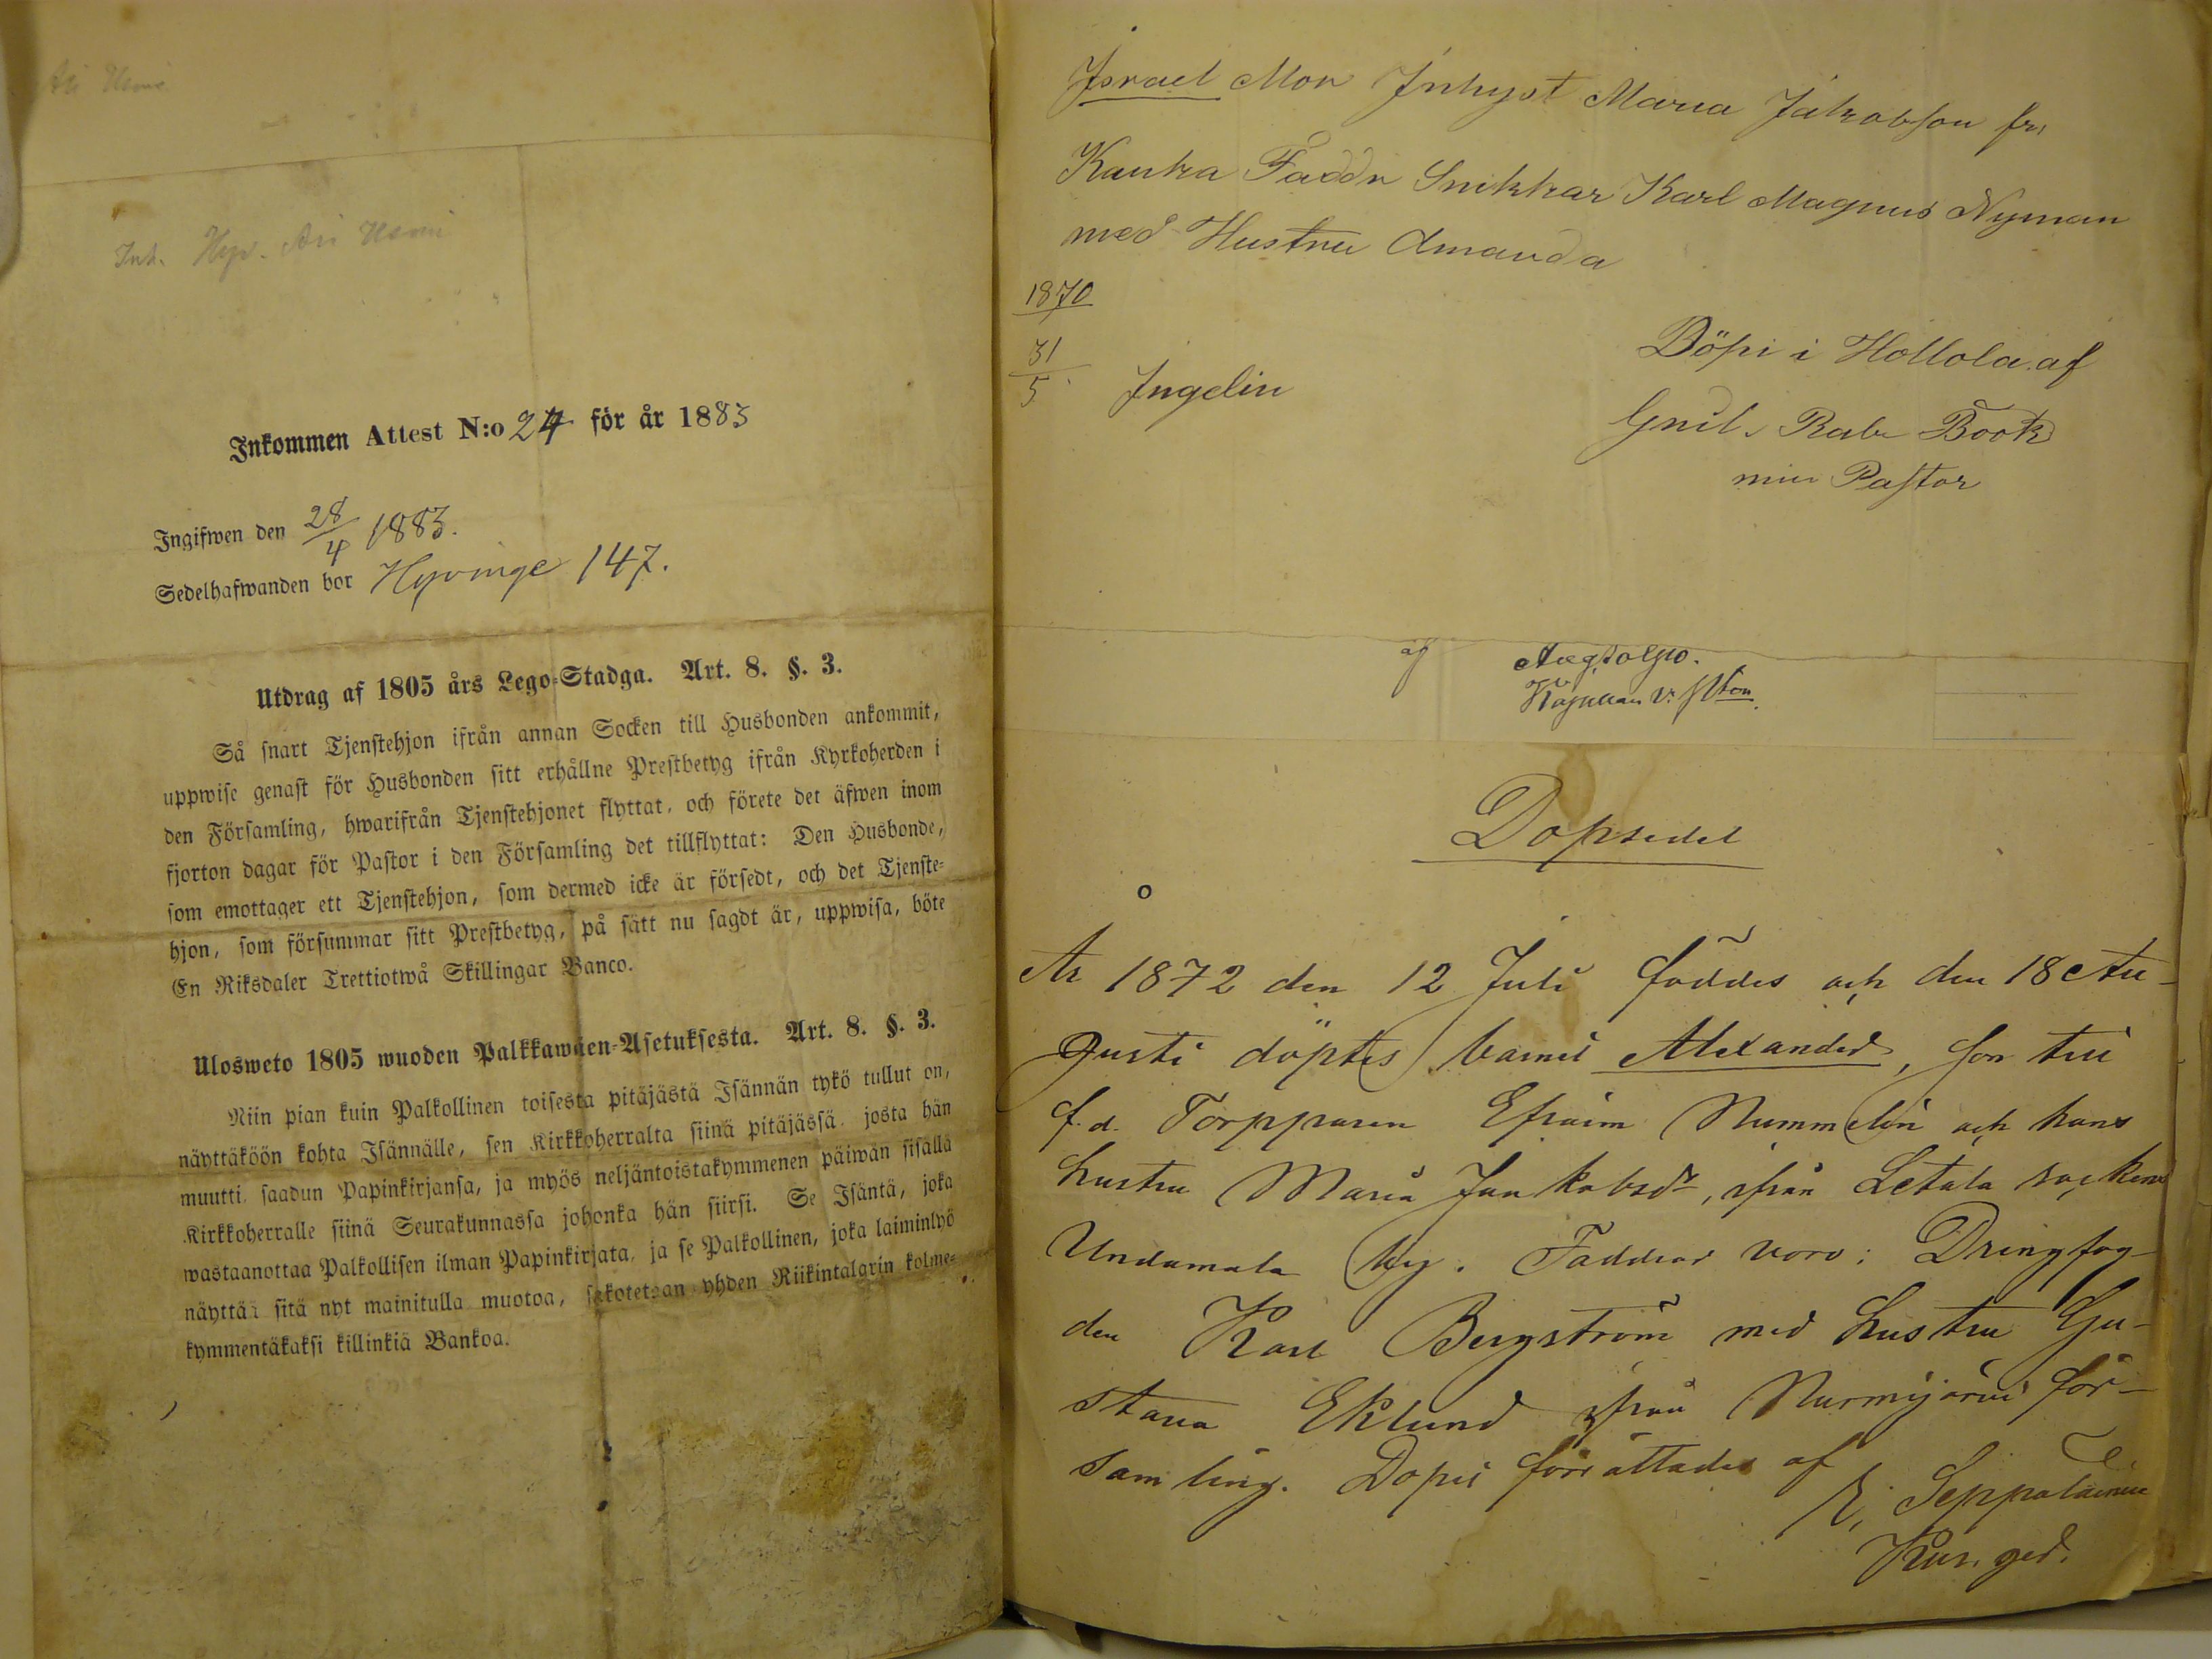 Inh. Hyv. Ari Usmi
Inkommen Attest N:o 24 för år 1883
Ingifwen den 28/4 1883.
Sedelhafwanden bor Hyvinge 147.
Utdrag af 1805 års Lego-Stadga. Art. 8. §. 3.
Så snart Tjenstehjon ifrån annan Socken till Husbonden ankommit,
uppwise genast för Husbonden sitt erhållne Prestbetyg ifrån Kyrkoherden i
den Församling, hwarifrån Tjenstehjonet flyttat, och förete det äfwen inom
fjorton dagar för Pastor i den Församling det tillflyttat: Den Husbonde,
som emottager ett Tjenstehjon, som dermed icke är försedt, och det Tjenste-
hjon, som försummar sitt Prestbetyg, på sätt nu sagdt är, uppwisa, böte
En Riksdaler Trettiotwå Skillingar Banco.
Ulosweto 1805 wuoden Palkkawäen-Asetuksesta. Art. 8. §. 3.
Niin pian kuin Palkollinen toisesta pitäjästä Isännän tykö tullut on,
näyttäköön kohta Isännälle, sen Kirkkoherralta siinä pitäjässä, josta hän
muutti, saadun Papinkirjansa, ja myös neljäntoistakymmenen päiwän sisällä
Kirkkoherralle siinä Seurakunnassa johonka hän siirsi. Se Isäntä, joka
wastaanottaa Palkollisen ilman Papinkirjata, ja se Palkollinen, joka laiminlyö
näyttää sitä nyt mainitulla muotoa, sakotetaan yhden Riikintalarin kolme-
kymmentäkaksi killinkiä Bankoa.
Israel Mor Inhyst Maria Jakobsson fr.
Kauka Faddr Snikkar Karl Magnus Nyman
med Hustru Amanda
1870
31/5 Ingelin
Döpt i Hollola af
Gnil. Rabe Book
min Pastor
af
Dopsedel
År 1872 den 12 Juli föddes och den 18 Au-
gusti döptes barnet Alexander, son till
f.d. Torpparen Efraim Nummelin och hans
hustru Maria Jaakobsdr, från Letala socken
Undamala by. Faddrar voro: Drengfog-
den Karl Bergström med hustru Gu-
stava Eklund från Nurmijärvi för-
samling. Dopet förrättades af
E. Seppäläinen